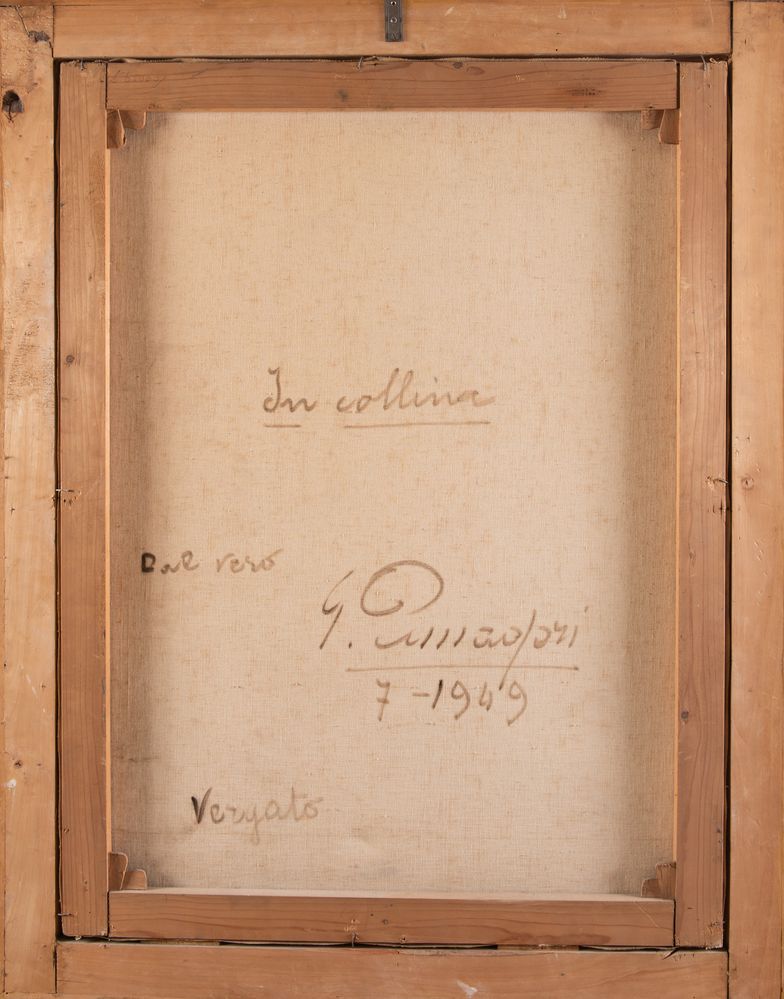 In collina
Dal vero
G.
7-1949
Vergato